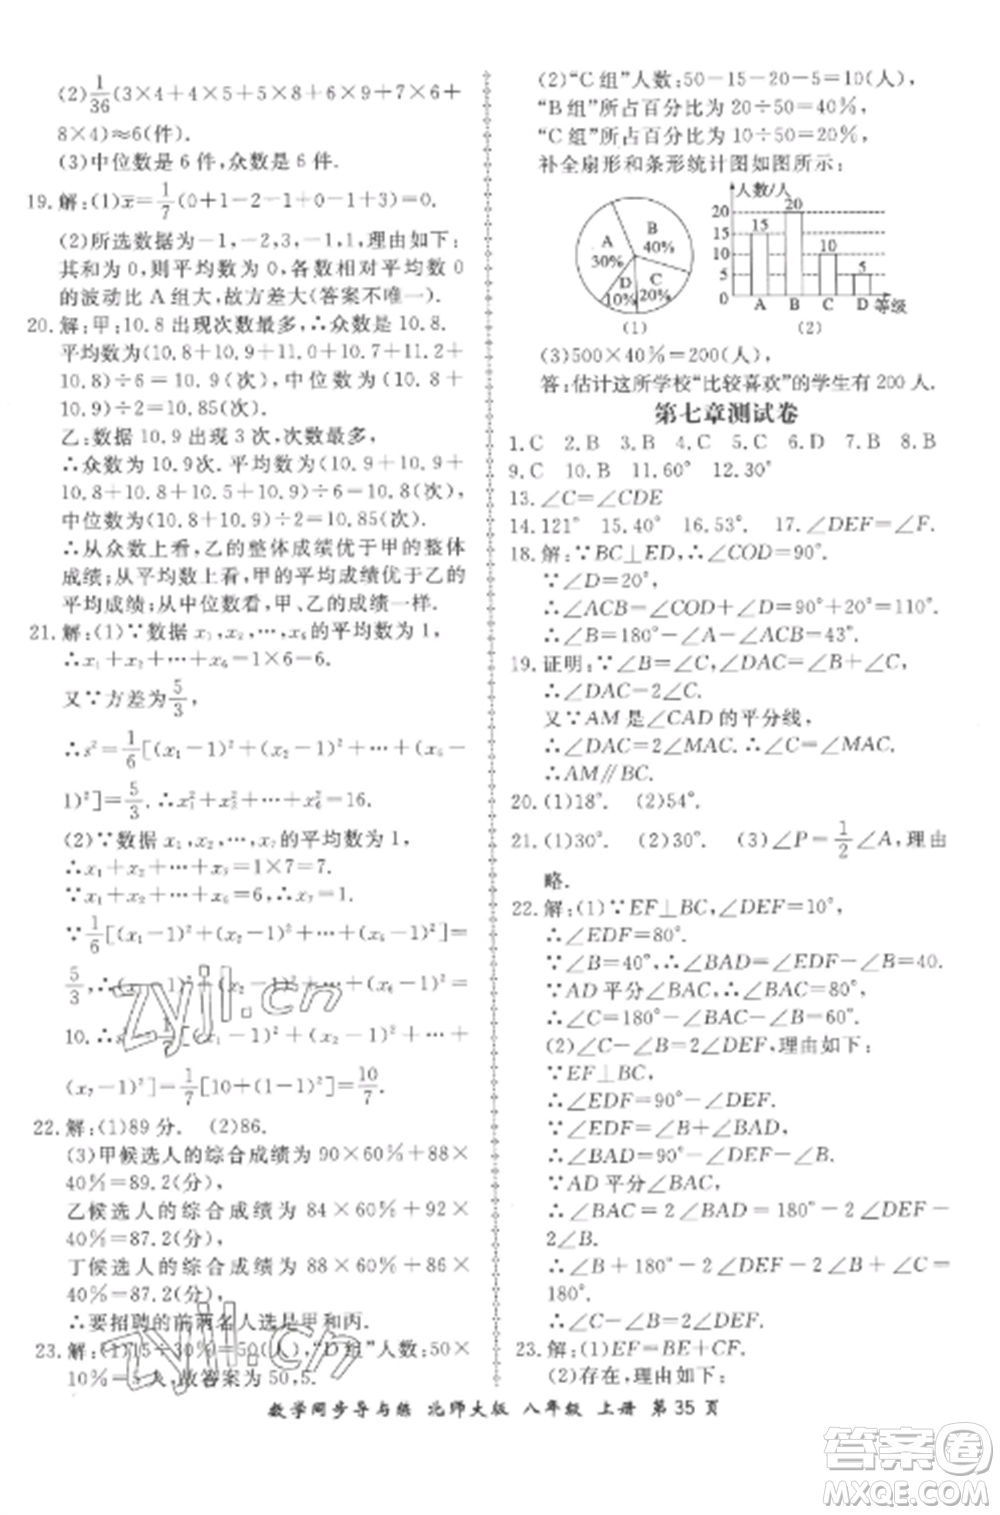 (2)1/36(3×4+4×5+5×8+6×9+7×6+
8×4)≈6(件).
(3)中位数是 6 件,众数是 6 件.
19.解:(1)x̄=1/7(0+1-2-1-1+0+3)=0.
(2)所选数据为-1,-2,3,-1,1,理由如下:
其和为 0,则平均数为 0,各数相对平均数 0
的波动比 A 组大,故方差大(答案不唯一).
20.解:甲:10.8 出现次数最多,∴众数是 10.8.
平均数为(10.8+10.9+11.0+10.7+11.2+
10.8)÷6=10.9(次),中位数为(10.8+
10.9)÷2=10.85(次).
乙:数据 10.9 出现 3 次,次数最多,
∴众数为 10.9次. 平均数为(10.9+10.9+
10.8+10.8+10.5+10.9)÷6=10.8(次),
中位数为(10.8+10.9)÷2=10.85(次).
∴从众数上看,乙的整体成绩优于甲的整体
成绩;从平均数上看,甲的平均成绩优于乙的
平均成绩;从中位数看,甲、乙的成绩一样.
21.解:(1)∵数据 x₁,x₂,…,x₆的平均数为 1,
∴x₁+x₂+…+x₆=1×6=6.
又∵方差为5/3,
∴s²=1/6[(x₁-1)²+(x₂-1)²+…+(x₆-
1)²]=5/3,∴x₁²+x₂²+…+x₆²=16.
(2)∵数据 x₁,x₂,…,x₇的平均数为 1,
∴x₁+x₂+…+x₇=1×7=7.
∵x₁+x₂+…+x₆=6,∴x₇=1.
∵1/6[(x₁-1)²+(x₂-1)²+…+(x₆-1)²]=
5/3,∴(x₁-1)²+(x₂-1)²+…+(x₆-1)²=
10.∴s²=1/7[(x₁-1)²+(x₂-1)²+…+
(x₇-1)²]=1/7[10+(1-1)²]=10/7.
22.解:(1)89 分. (2)86.
(3)甲候选人的综合成绩为 90×60%+88×
40%=89.2(分),
乙候选人的综合成绩为 84×60%+92×
40%=87.2(分),
丁候选人的综合成绩为 88×60%+86×
40%=87.2(分),
∴要招聘的前两名人选是甲和丙.
23.解:(1)15÷30%=50(人),“D组”人数:50×
10%=5.故答案为 50,5.
(2)“C 组”人数:50-15-20-5=10(人),
“B组”所占百分比为 20÷50=40%,
“C组”所占百分比为 10÷50=20%.
补全扇形和条形统计图如图所示:
A 30%
B 40%
C 20%
D 10%
(1)
人数/人
20
15
10
5
0
15 20 10 5
A B C D 等级
(2)
(3)500×40%=200(人).
答:估计这所学校“比较喜欢”的学生有 200 人.
第七章测试卷
1.C 2.B 3.C 4.B 5.C 6.D 7.B 8.B
9.C 10.B 11.60° 12.30°
13.∠C=∠CDE
14.121° 15.40° 16.53° 17.∠DEF=∠F.
18.解:∵BC⊥ED,∴∠COD=90°.
∵∠D=20°,
∴∠ACB=∠COD+∠D=90°+20°=110°.
∴∠B=180°-∠A-∠ACB=43°.
19.证明:∵∠B=∠C,∠DAC=∠B+∠C,
∴∠DAC=2∠C.
又∵AM 是∠CAD的平分线,
∴∠DAC=2∠MAC.∴∠C=∠MAC.
∴AM∥BC.
20.(1)18° (2)54°
21.(1)30° (2)30° (3)∠P=1/2∠A,理由
略.
22.解:(1)∵EF⊥BC,∠DEF=10°,
∴∠EDF=80°.
∵∠B=40°,∴∠BAD=∠EDF-∠B=40.
∵AD 平分∠BAC,∴∠BAC=80°.
∴∠C=180°-∠BAC-∠B=60°.
(2)∠C-∠B=2∠DEF,理由如下:
∵EF⊥BC.
∴∠EDF=90°-∠DEF.
∵∠EDF=∠B+∠BAD,
∴∠BAD=90°-∠DEF-∠B.
∵AD 平分∠BAC,
∴∠BAC=2∠BAD=180°-2∠DEF-
2∠B.
∴∠B+180°-2∠DEF-2∠B+∠C=
180°.∴∠C-∠B=2∠DEF.
23.解:(1)EF=BE+CF.
(2)存在,理由如下:
数学同步导与练 北师大版 八年级 上册 第35页
zyjl.cn
zyjl.cn
答案卷
MXQE.COM